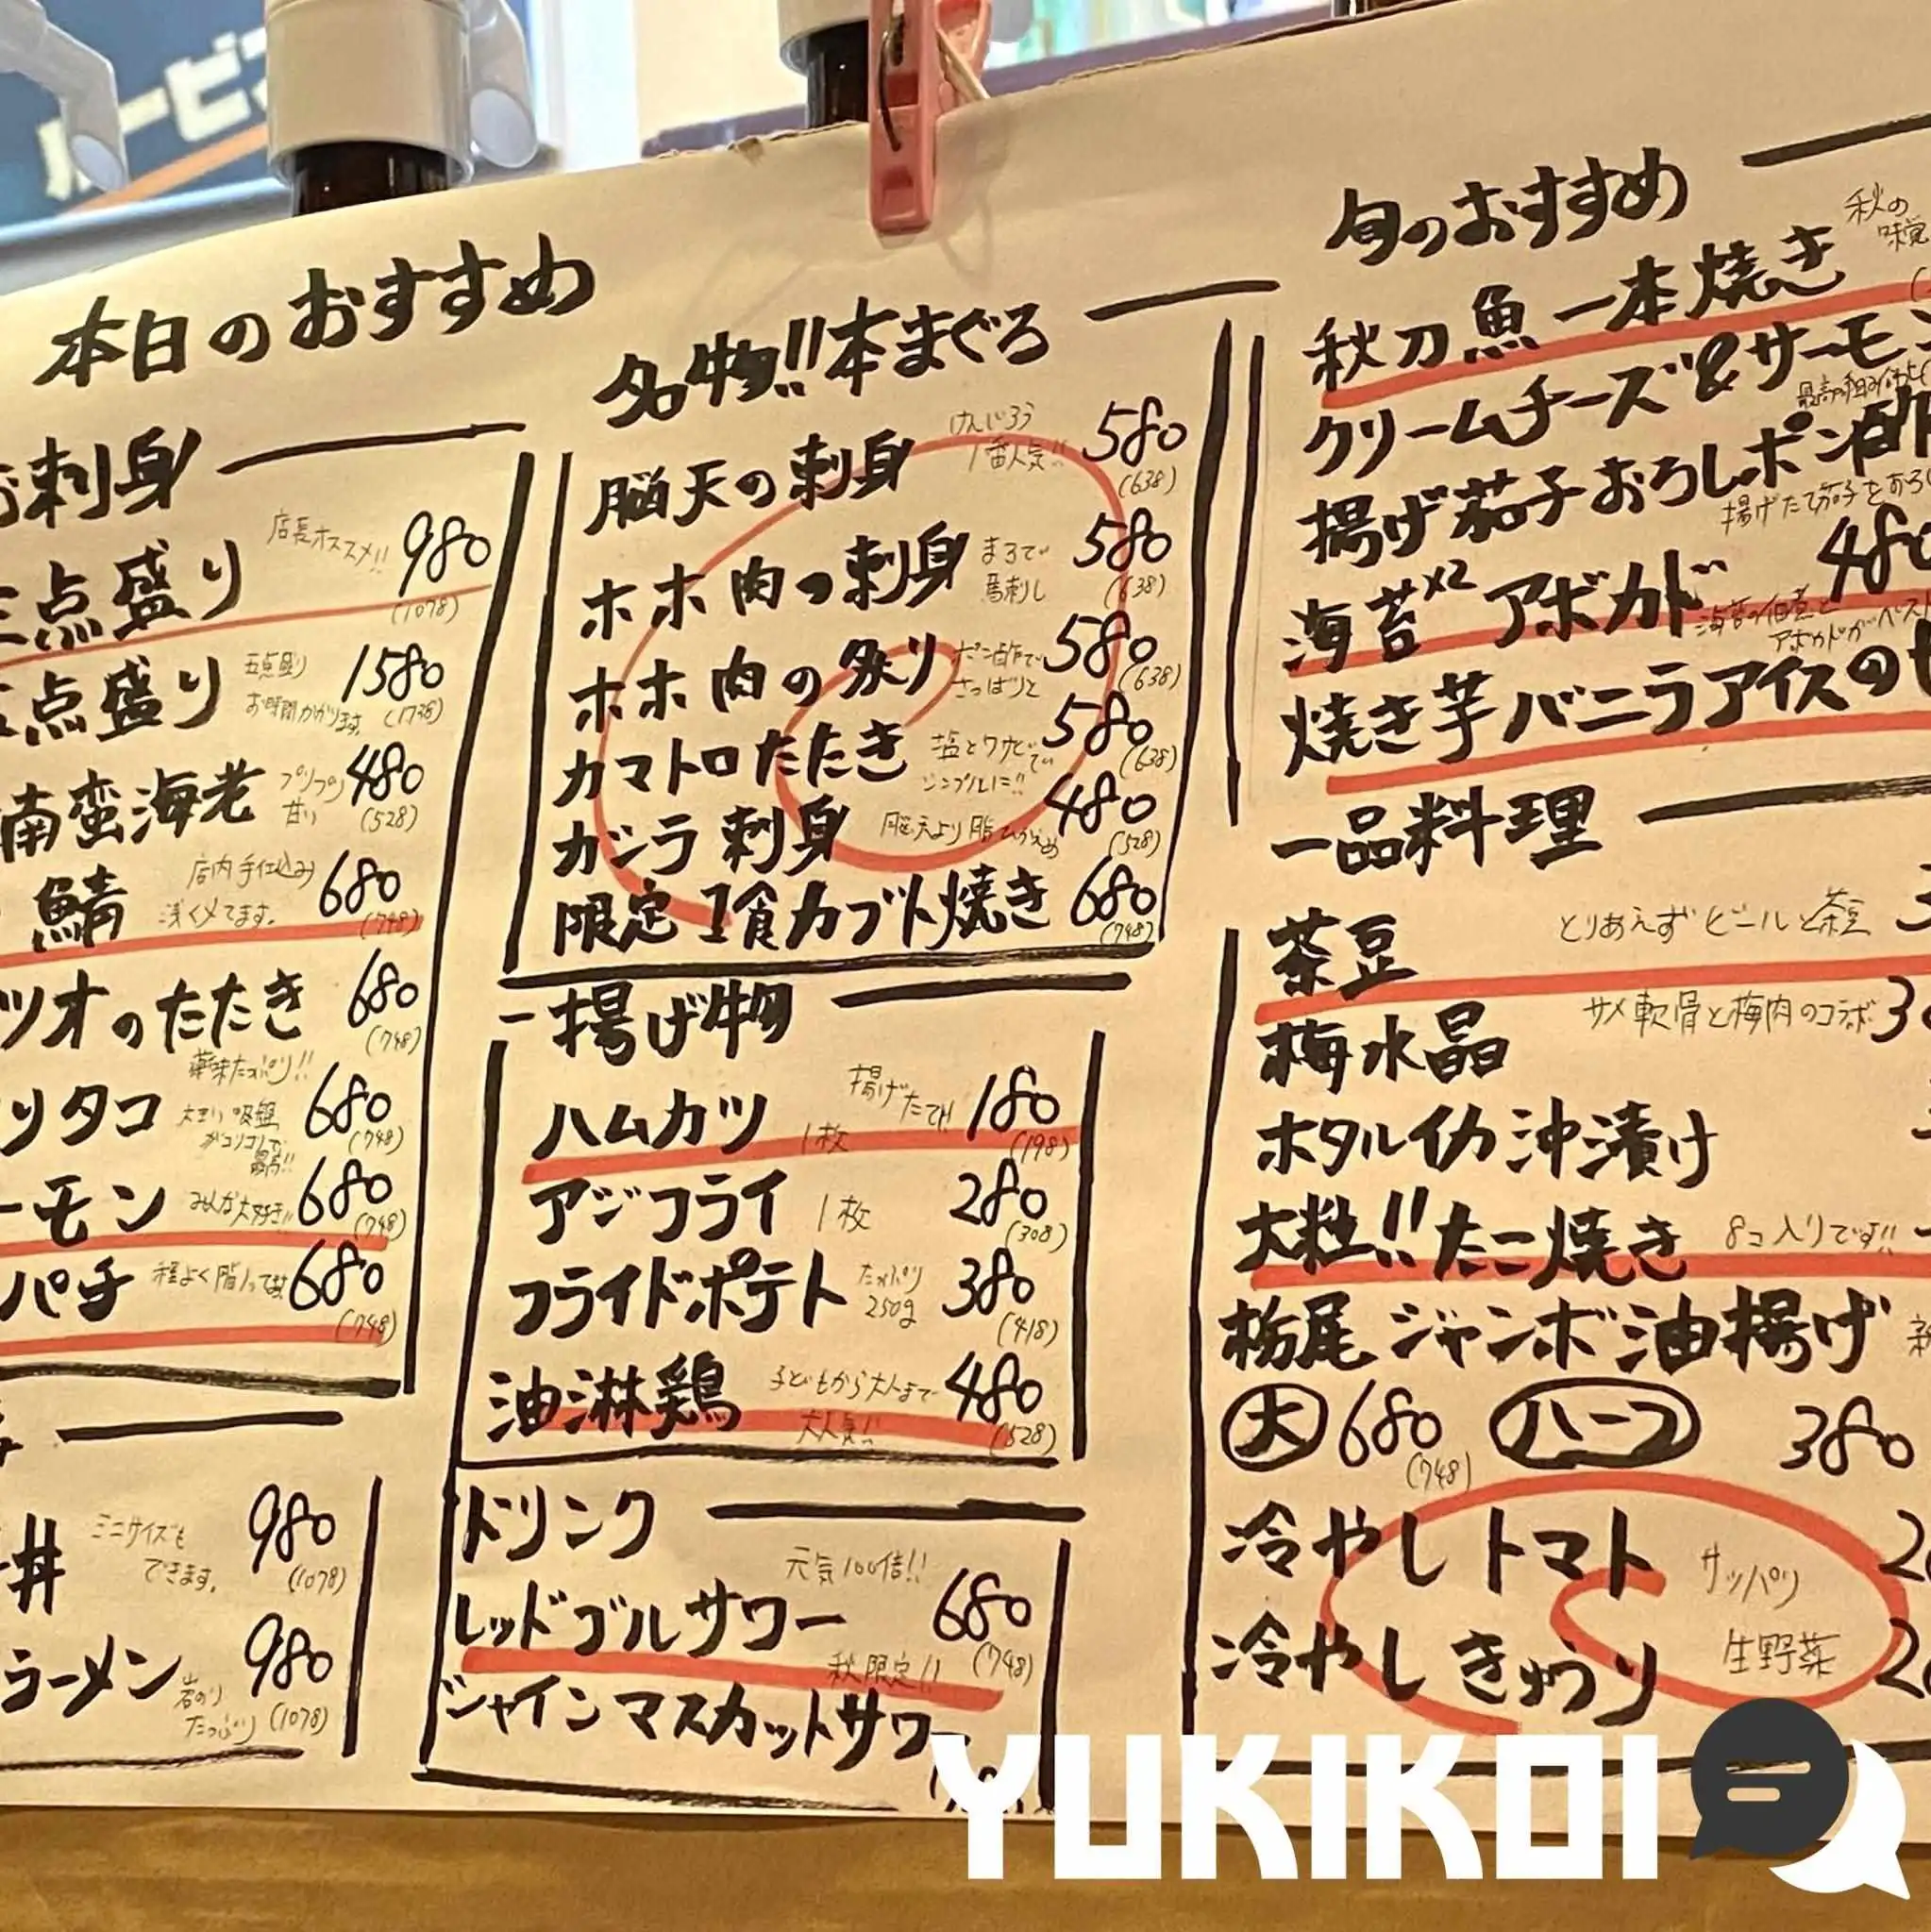 本日のおすすめ
お刺身
三点盛り 店長オススメ!! 980
(1078)
点盛り 五点盛り 1580
お時間かかります。 (1738)
南蛮海老 プリプリ 480
甘い (528)
鯖 店内手仕込み 680
浅く〆てます。 (748)
ツオのたたき 680
薬味たっぷり!! (748)
リタコ 大きい吸盤 680
がコリコリで (748)
最高!!
ーモン みんな大好き!! 680
(748)
パチ 程よく脂 680
(748)
丼 ミニサイズも 980
できます。 (1078)
ラーメン 岩のり 980
たっぷり (1078)
名物!!本まぐろ
脳天の刺身 けんじろう 580
1番人気!! (638)
ホホ肉の刺身 まるで 580
馬刺し (638)
ホホ肉の炙り ポン酢で 580
さっぱりと (638)
カマトロたたき 塩とワサビで 580
シンプルに!! (638)
ガシラ刺身 脳天より脂 480
(528)
限定1食カブト焼き 680
(748)
一揚げ物
ハムカツ 1枚 揚げたて!! 180
(198)
アジフライ 1枚 280
(308)
フライドポテト たっぷり 380
250g (418)
油淋鶏 子どもから大人まで 480
大人気!! (528)
ドリンク
レッドブルサワー 元気100倍!! 680
(748)
秋限定!!
シャインマスカットサワー
旬のおすすめ
秋刀魚一本焼き 秋の
味覚
クリームチーズ&サーモン
揚げ茄子おろしポン酢
揚げたて茄子をおろし
海苔×2アボカド 480
海苔の佃煮と
アボカドがベスト
焼き芋バニラアイスの
一品料理
茶豆 とりあえずビールと茶豆
梅水晶 サメ軟骨と梅肉のコラボ
ホタルイカ沖漬け
大粒!!たこ焼き 8コ入りです!!
栃尾ジャンボ油揚げ
大 680 ハーフ 380
(748)
冷やしトマト サッパリ
冷やしきゅうり 生野菜
YUKIKOI